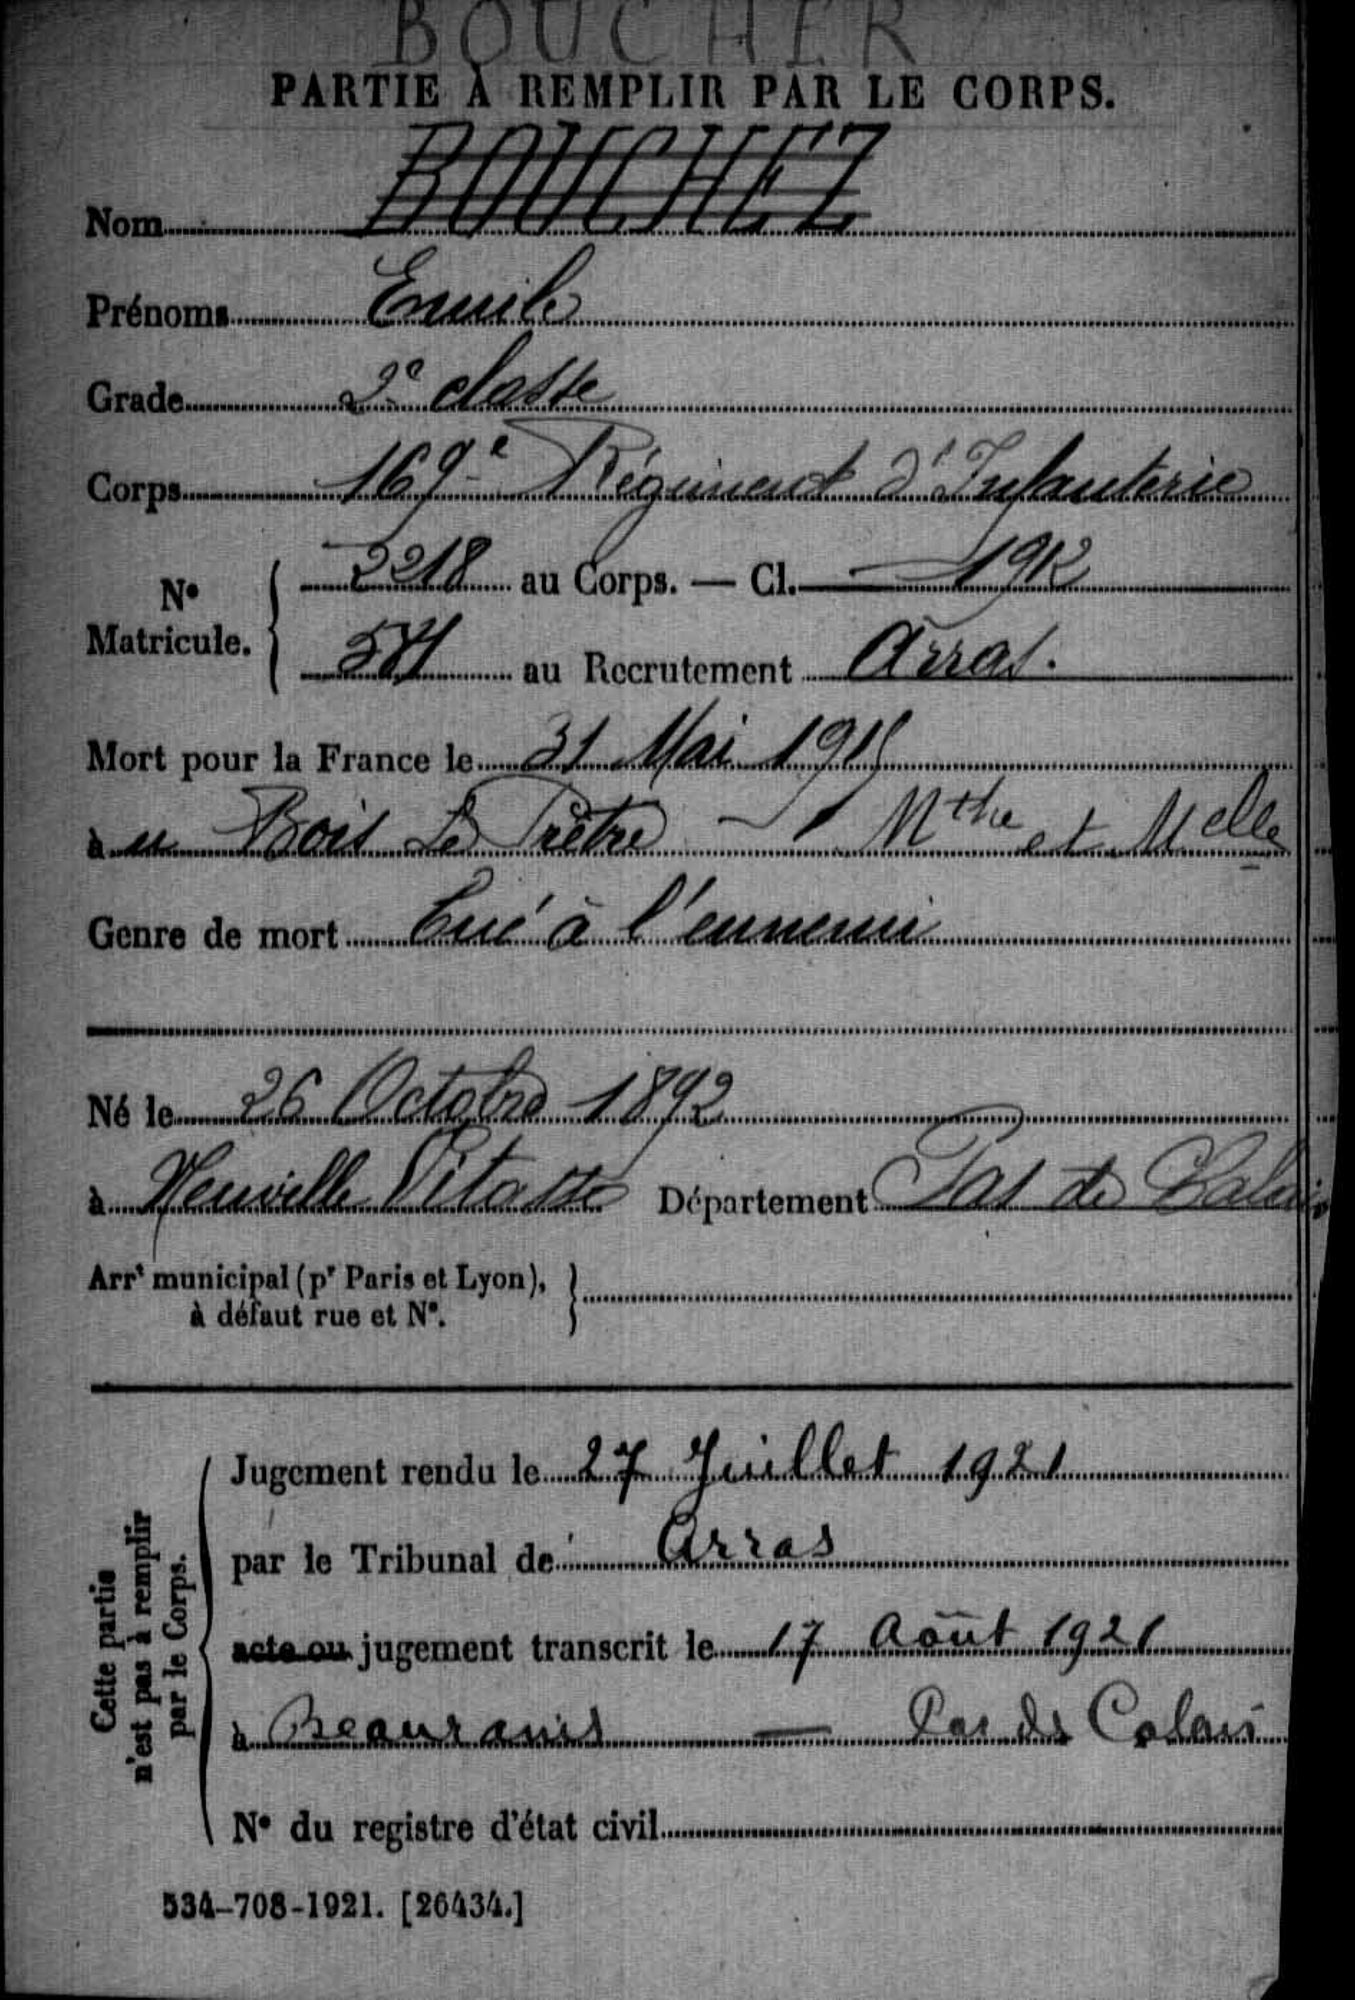 BOUCHER
PARTIE À REMPLIR PAR LE CORPS.
Nom BOUCHEZ
Prénoms Emile
Grade 2e classe
Corps 169e Régiment d'Infanterie
No Matricule. { 2218 au Corps. — Cl. 1912
571 au Recrutement Arras.
Mort pour la France le 31 Mai 1915
à u Bois Le Prêtre — Mthe et Melle
Genre de mort Tué à l'ennemi
Né le 26 Octobre 1892
à Neuville Vitasse Département Pas de Calais
Arrt municipal (pr Paris et Lyon), }
à défaut rue et No.
Cette partie
n'est pas à remplir
par le Corps.
Jugement rendu le 27 Juillet 1921
par le Tribunal de Arras
acte ou jugement transcrit le 17 Août 1921
à Beaurains — Pas de Calais
No du registre d'état civil
534-708-1921. [26434.]